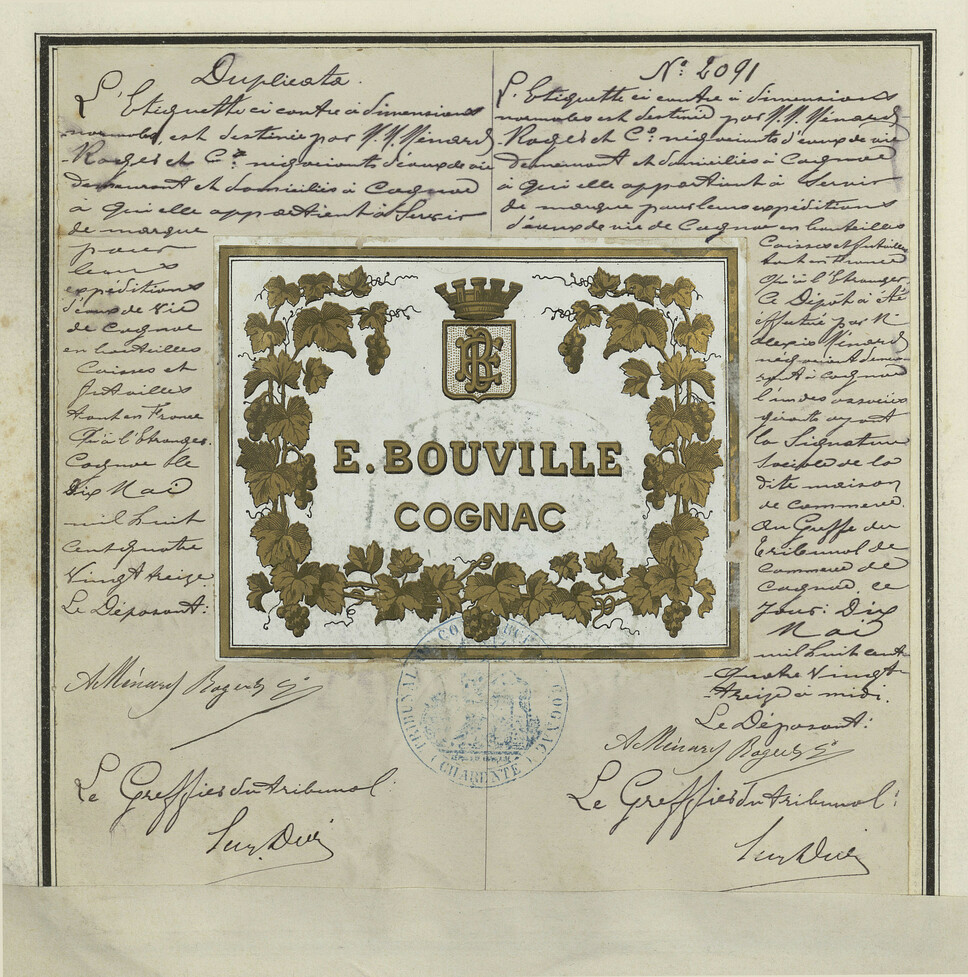 Duplicata.
L'Etiquette ci contre à dimensions
normales, est destinée par M.M. Ménard
Rogée et Cie négociants d'eaux de vie
demeurant et domiciliés à Cognac
à qui elle appartient à Servir
de marque
pour
leurs
expéditions
d'eaux de Vie
de Cognac
en bouteilles
Caisses et
futailles
tant en France
qu'à l'Etranger.
Cognac le
Dix Mai
mil huit
cent quatre
Vingt treize
Le Déposant:
Le Greffier du tribunal:
N° 2091
L'Etiquette ci contre à dimensions
normales est destinée par M.M. Ménard
Rogée et Cie négociants d'eaux de vie
demeurant et domiciliés à Cognac
à qui elle appartient à Servir
de marque pour leurs expéditions
d'eaux de vie de Cognac en bouteilles
Caisses et futailles
tant en France
qu'à l'Etranger
Ce Dépôt a été
effectué par M
Alexis Ménard
négociant demeu-
rant à Cognac
l'un des associés
ayant
la Signature
Sociale de la
dite maison
de commerce.
Au Greffe du
tribunal de
commerce de
Cognac, ce
Jour: Dix
Mai
mil huit cent
quatre Vingt
treize à midi.
Le Déposant:
Le Greffier du tribunal:
E. BOUVILLE
COGNAC
TRIBUNAL COGNAC
(CHARENTE)